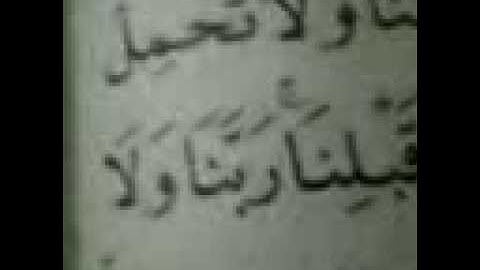 نَا وَلَا تَحْمِلْ
قَبْلِنَا رَبَّنَا وَلَا